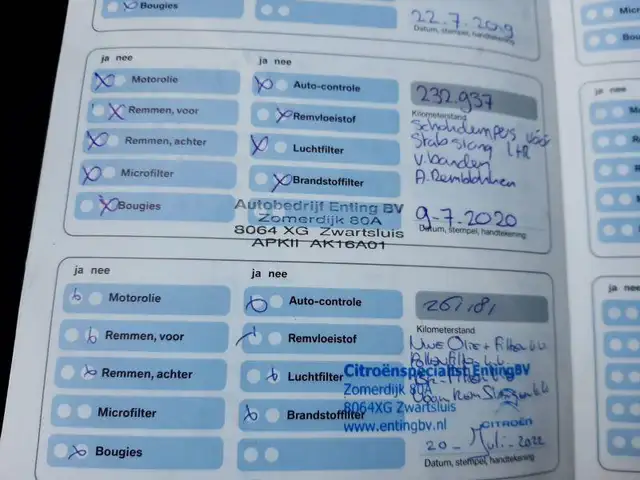 Bougies
22.7.2019
Datum, stempel, handtekening
Microfilter
ja nee
Motorolie
Remmen, voor
Remmen, achter
Microfilter
Bougies
ja nee
Auto-controle
Remvloeistof
Luchtfilter
Brandstoffilter
232.937
Kilometerstand
Schokdempers vóór
Stabstang L+R
V. banden
A. Remblokken
9-7-2020
Datum, stempel, handtekening
Autobedrijf Enting BV
Zomerdijk 80A
8064 XG Zwartsluis
APKII AK16A01
ja nee
Motorolie
Remmen, voor
Remmen, achter
Microfilter
Bougies
ja nee
Auto-controle
Remvloeistof
Luchtfilter
Brandstoffilter
Kilometerstand
Olie + Filter
Citroënspecialist EntingBV
Zomerdijk 80A
8064XG Zwartsluis
www.entingbv.nl
CITROËN
20-Juli-2022
Datum, stempel, handtekening
ja nee
ja nee